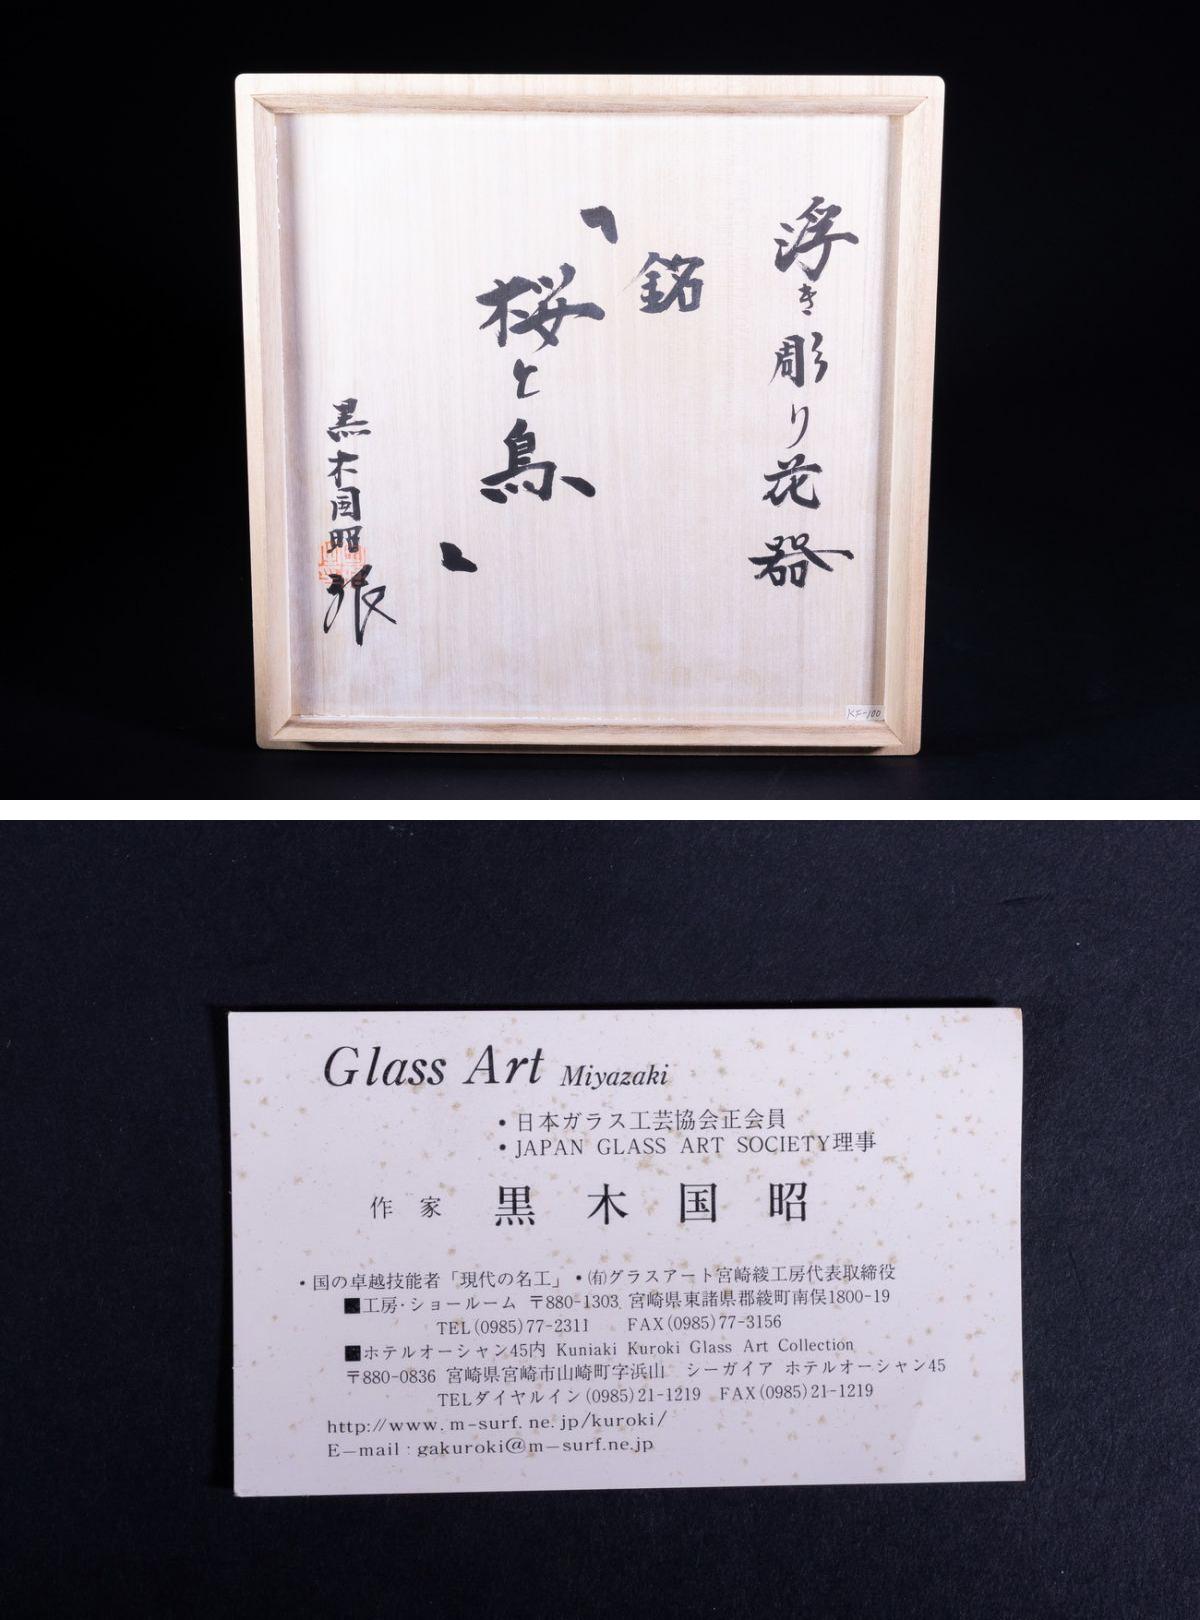 浮き彫り花器
銘
「桜と鳥」
黒木国昭
KF-100
Glass Art Miyazaki
・日本ガラス工芸協会正会員
・JAPAN GLASS ART SOCIETY理事
作家 黒木国昭
・国の卓越技能者「現代の名工」・㈲グラスアート宮崎綾工房代表取締役
■工房・ショールーム 〒880-1303 宮崎県東諸県郡綾町南俣1800-19
TEL(0985)77-2311 FAX(0985)77-3156
■ホテルオーシャン45内 Kuniaki Kuroki Glass Art Collection
〒880-0836 宮崎県宮崎市山崎町字浜山 シーガイア ホテルオーシャン45
TELダイヤルイン(0985)21-1219 FAX(0985)21-1219
http://www.m-surf.ne.jp/kuroki/
E-mail:gakuroki@m-surf.ne.jp